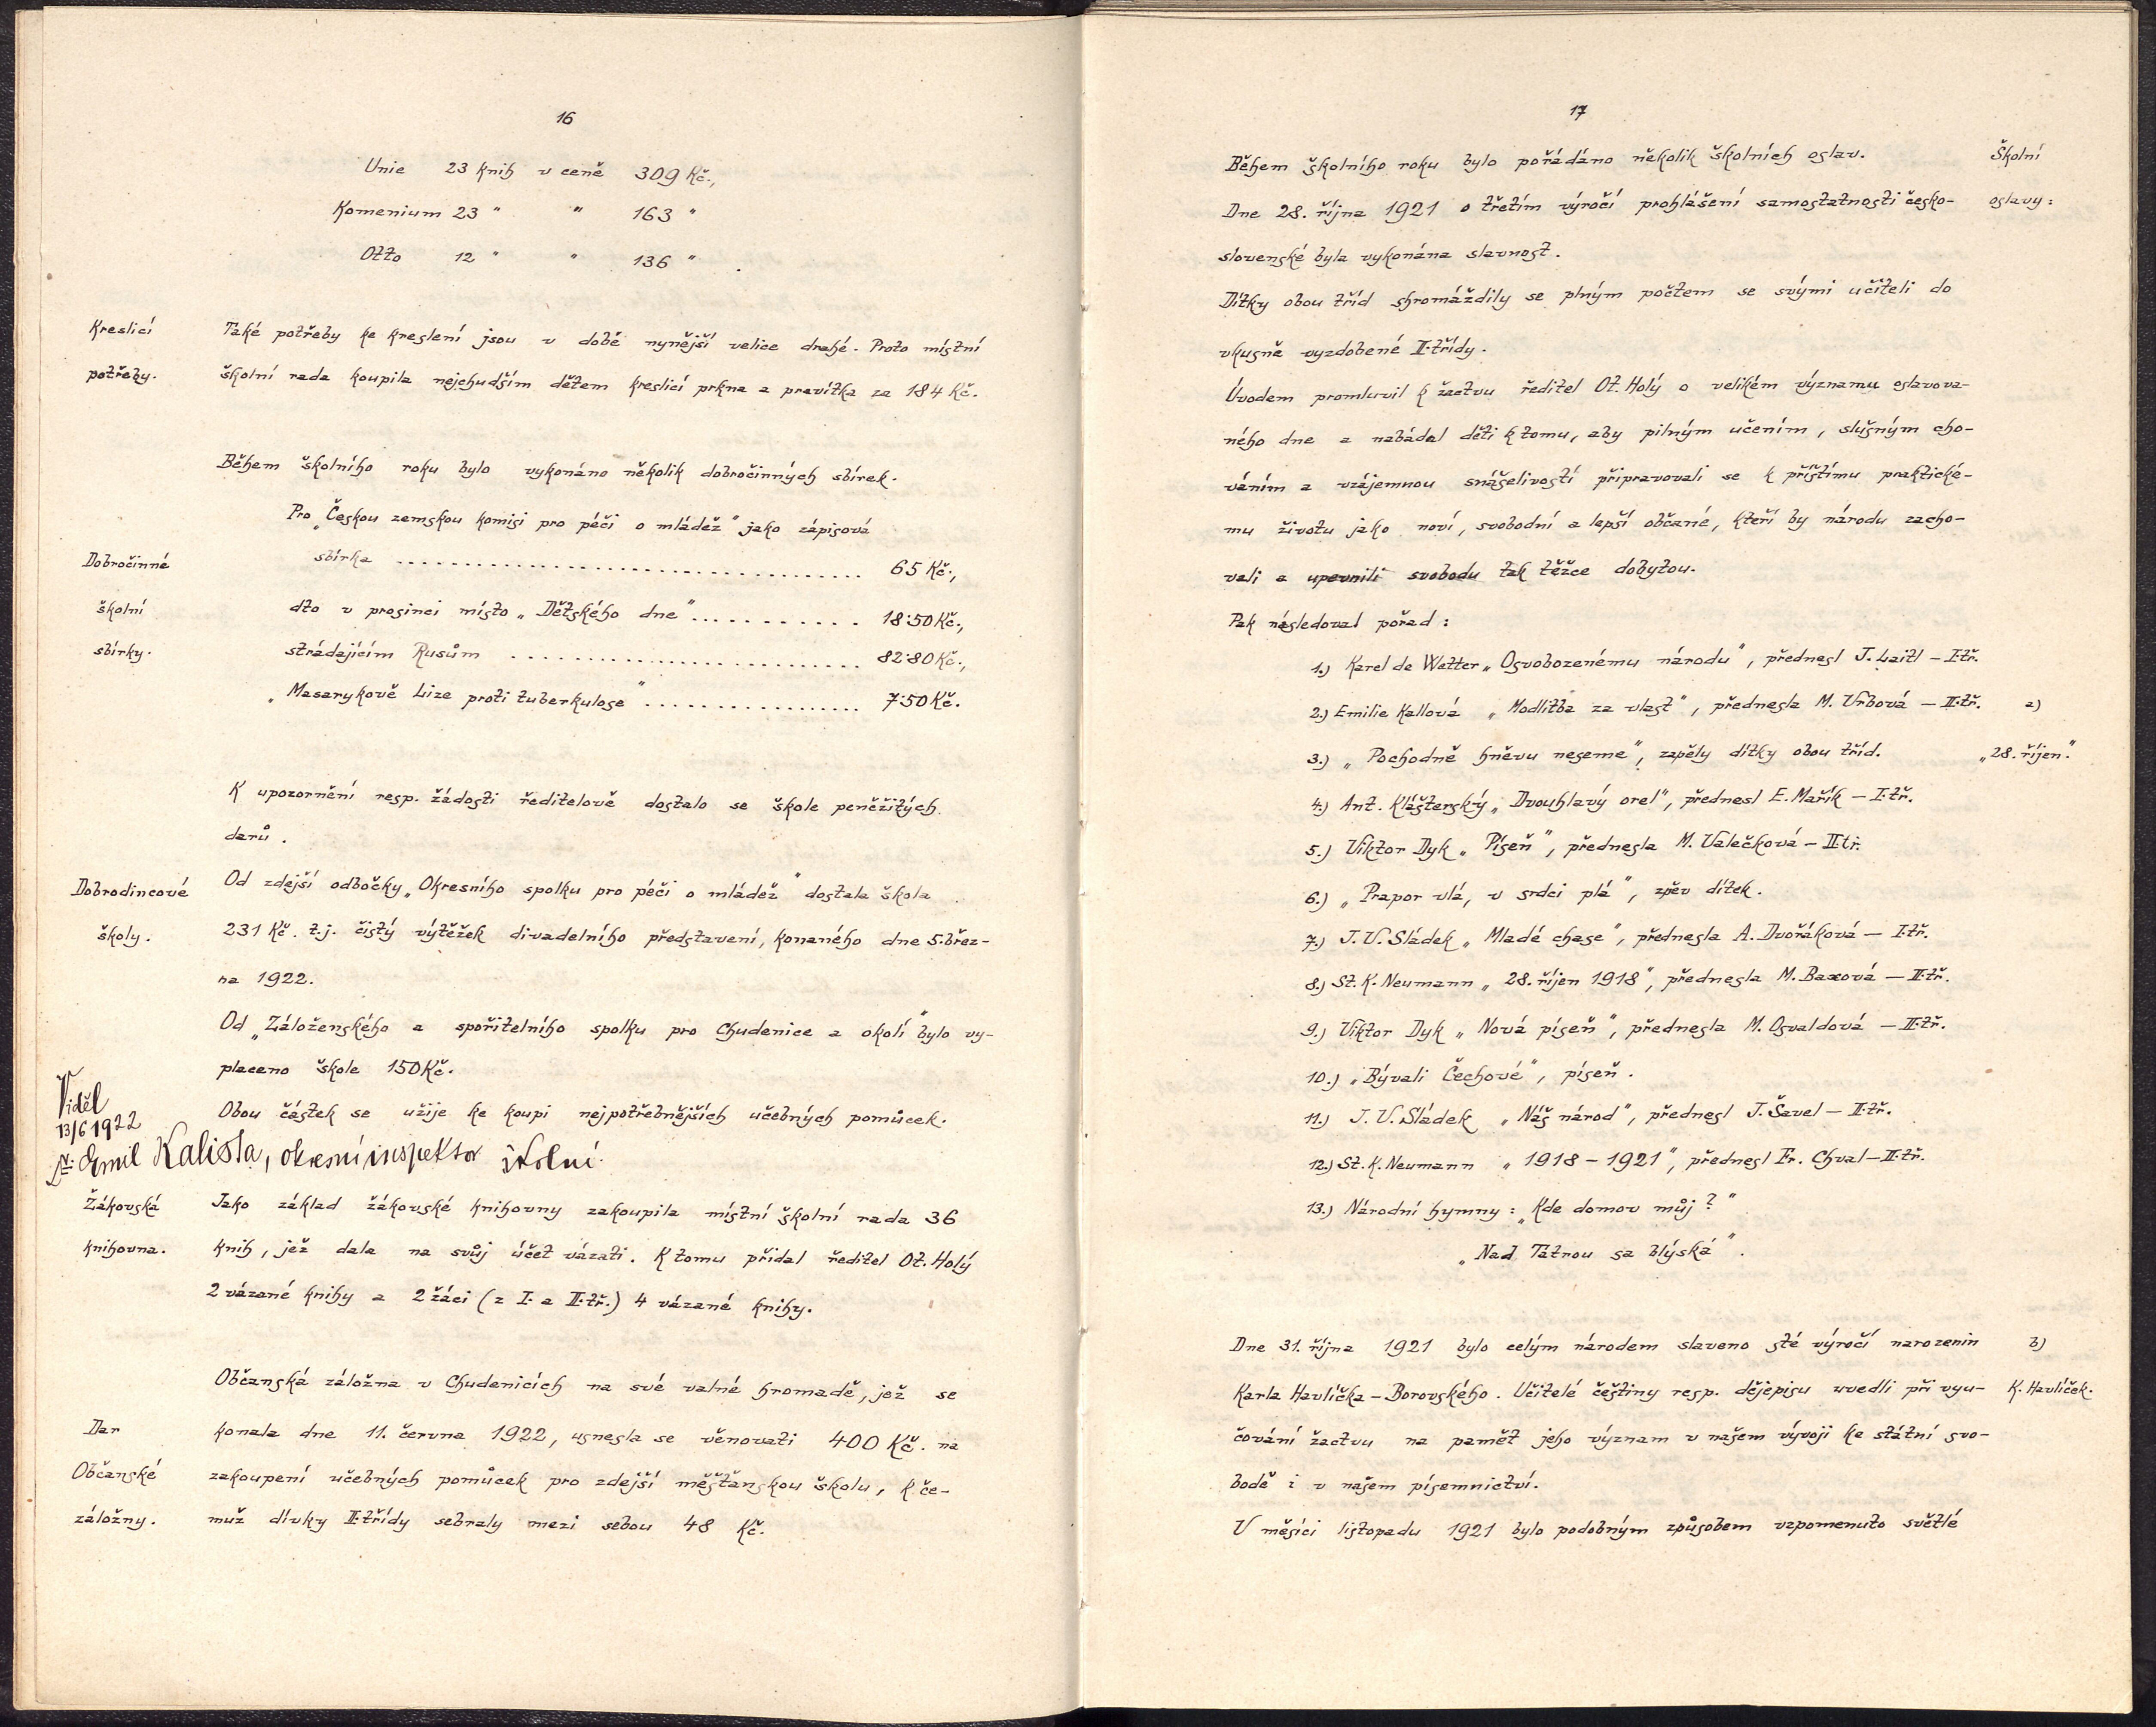 16
Unie 23 knih v ceně 309 Kč.,
Komenium 23 " " 163 "
Otto 12 " " 136 " .
Kreslicí
potřeby.
Také potřeby ke kreslení jsou v době nynější velice drahé. Proto místní
školní rada koupila nejchudším dětem kreslicí prkna a pravítka za 184 Kč.
Během školního roku bylo vykonáno několik dobročinných sbírek.
Dobročinné
školní
sbírky.
Pro „Českou zemskou komisi pro péči o mládež" jako zápisová
sbírka .................................... 65 Kč.,
dto v prosinci místo „Dětského dne" ............ 18·50 Kč.,
strádajícím Rusům ........................... 82·80 Kč.,
„Masarykově Lize proti tuberkulose" ................. 7·50 Kč.
K upozornění resp. žádosti ředitelově dostalo se škole peněžitých
darů.
Dobrodincové
školy.
Od zdejší odbočky „Okresního spolku pro péči o mládež" dostala škola
231 Kč. t.j. čistý výtěžek divadelního představení, konaného dne 5. břez-
na 1922.
Od „Záloženského a spořitelního spolku pro Chudenice a okolí" bylo vy-
placeno škole 150 Kč.
Obou částek se užije ke koupi nejpotřebnějších učebných pomůcek.
Viděl
13/6 1922
Emil Kalista, okresní inspektor školní.
Žákovská
knihovna.
Jako základ žákovské knihovny zakoupila místní školní rada 36
knih, jež dala na svůj účet vázati. K tomu přidal ředitel Ot. Holý
2 vázané knihy a 2 žáci (z I. a II. tř.) 4 vázané knihy.
Dar
Občanské
záložny.
Občanská záložna v Chudenicích na své valné hromadě, jež se
konala dne 11. června 1922, usnesla se věnovati 400 Kč. na
zakoupení učebných pomůcek pro zdejší měšťanskou školu, k če-
muž dívky II. třídy sebraly mezi sebou 48 Kč.
17
Školní
oslavy:
Během školního roku bylo pořádáno několik školních oslav.
Dne 28. října 1921 o třetím výročí prohlášení samostatnosti česko-
slovenské byla vykonána slavnost.
Dítky obou tříd shromáždily se plným počtem se svými učiteli do
vkusně vyzdobené II. třídy.
Úvodem promluvil k žactvu ředitel Ot. Holý o velikém významu oslavova-
ného dne a nabádal děti k tomu, aby pilným učením, slušným cho-
váním a vzájemnou snášelivostí připravovali se k příštímu praktické-
mu životu jako noví, svobodní a lepší občané, kteří by národu zacho-
vali a upevnili svobodu tak těžce dobytou.
Pak následoval pořad:
1.) Karel de Wetter „Osvobozenému národu", přednesl J. Laitl – I. tř.
2.) Emilie Kallová „Modlitba za vlast", přednesla M. Vrbová – II. tř.
a)
3.) „Pochodně hněvu neseme", zapěly dítky obou tříd.
„28. říjen."
4.) Ant. Klášterský „Dvouhlavý orel", přednesl E. Mařík – I. tř.
5.) Viktor Dyk „Píseň", přednesla M. Valečková – II. tř.
6.) „Prapor vlá, v srdci plá", zpěv dítek.
7.) J. V. Sládek „Mladé chase", přednesla A. Dvořáková – I. tř.
8.) St. K. Neumann „28. říjen 1918", přednesla M. Baxová – II. tř.
9.) Viktor Dyk „Nová píseň", přednesla M. Osvaldová – II. tř.
10.) „Bývali Čechové", píseň.
11.) J. V. Sládek „Náš národ", přednesl J. Šavel – II. tř.
12.) St. K. Neumann „1918 – 1921", přednesl Fr. Chval – II. tř.
13.) Národní hymny: „Kde domov můj?"
„Nad Tatrou sa blýská".
b)
K. Havlíček.
Dne 31. října 1921 bylo celým národem slaveno sté výročí narozenin
Karla Havlíčka – Borovského. Učitelé češtiny resp. dějepisu uvedli při vyu-
čování žactvu na paměť jeho význam v našem vývoji ke státní svo-
bodě i v našem písemnictví.
V měsíci listopadu 1921 bylo podobným způsobem vzpomenuto světlé